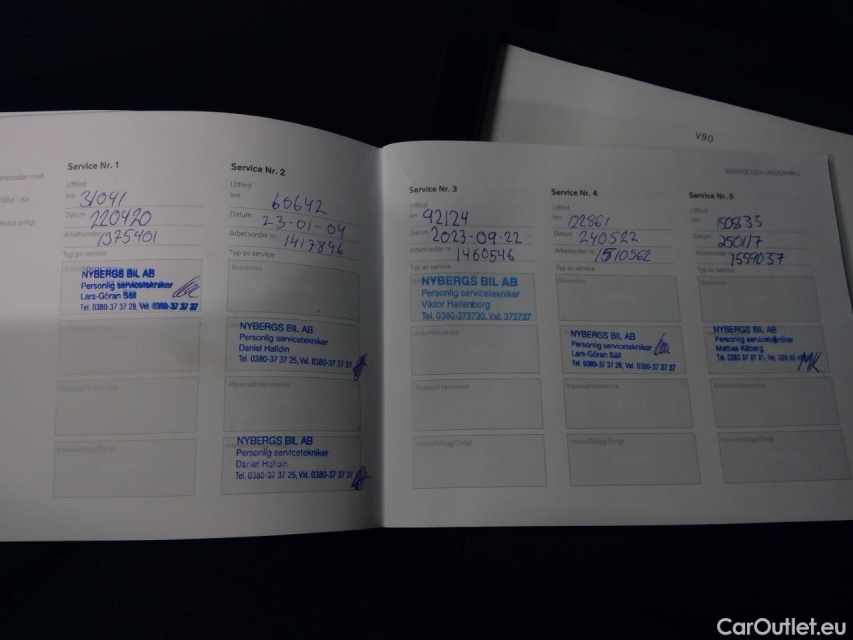 V90
SERVICE OCH UNDERHÅLL
Service Nr. 1
Utförd
km 31041
Datum 220420
Arbetsorder nr 1375401
Typ av service
NYBERGS BIL AB
Personlig servicetekniker
Lars-Göran Säll
Tel. 0380-37 37 28, Vxl. 0380-37 37 37
Service Nr. 2
Utförd
km 60642
Datum 23-01-04
Arbetsorder nr 1417896
Typ av service
Basservice
NYBERGS BIL AB
Personlig servicetekniker
Daniel Halldin
Tel. 0380-37 37 25, Vxl. 0380-37 37 37
Anpassad basservice
NYBERGS BIL AB
Personlig servicetekniker
Daniel Halldin
Tel. 0380-37 37 25, Vxl. 0380-37 37 37
Service Nr. 3
Utförd
km 92124
Datum 2023-09-22
Arbetsorder nr 1460546
Typ av service
NYBERGS BIL AB
Personlig servicetekniker
Viktor Hallenborg
Tel. 0380-373730, Vxl. 373737
Underhållsservice
Anpassad basservice
Intervalltillägg/Övrigt
Service Nr. 4
Utförd
km 122861
Datum 240522
Arbetsorder nr 1510562
Typ av service
Basservice
NYBERGS BIL AB
Personlig servicetekniker
Lars-Göran Säll
Tel. 0380-37 37 28, Vxl. 0380-37 37 37
Anpassad basservice
Intervalltillägg/Övrigt
Service Nr. 5
Utförd
km 150833
Datum 250117
Arbetsorder nr 1559037
Typ av service
Basservice
NYBERGS BIL AB
Personlig servicetekniker
Mattias Kåberg
Tel. 0380-37 37 31, Vx.
MK
Anpassad basservice
Intervalltillägg/Övrigt
CarOutlet.eu